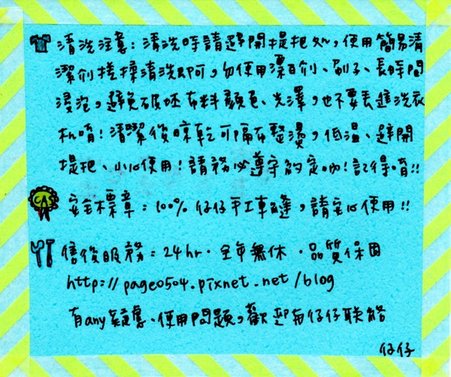 清洗注意：清洗時請避開提把處，使用簡易清
潔劑搓揉清洗即可，勿使用漂白劑、刷子、長時間
浸泡，避免破坏布料顏色、光澤，也不要丟進洗衣
机唷！清潔後晾乾可隔布整燙，低溫、避開
提把、小心使用！請務必遵守約定呦！記得唷!!
安全標章：100% 仔仔手工車縫，請安心使用!!
售後服務：24hr．全年無休．品質保固
http://page0504.pixnet.net/blog
有any疑慮、使用問題，歡迎与仔仔联絡
仔仔